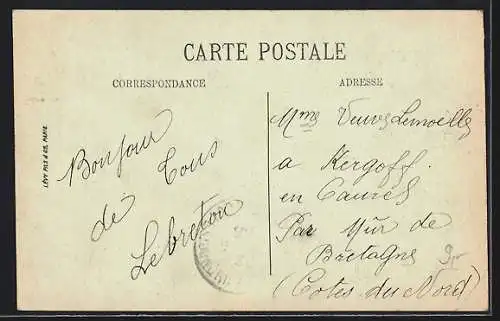 CARTE POSTALE
CORRESPONDANCE
ADRESSE
LÉVY FILS & CIE, PARIS
Bonjour
de Tous
Lebreton
Mme Veuve Lemoelle
a Kergoff
en Caurel
Par Mûr de
Bretagne
(Cotes du Nord)